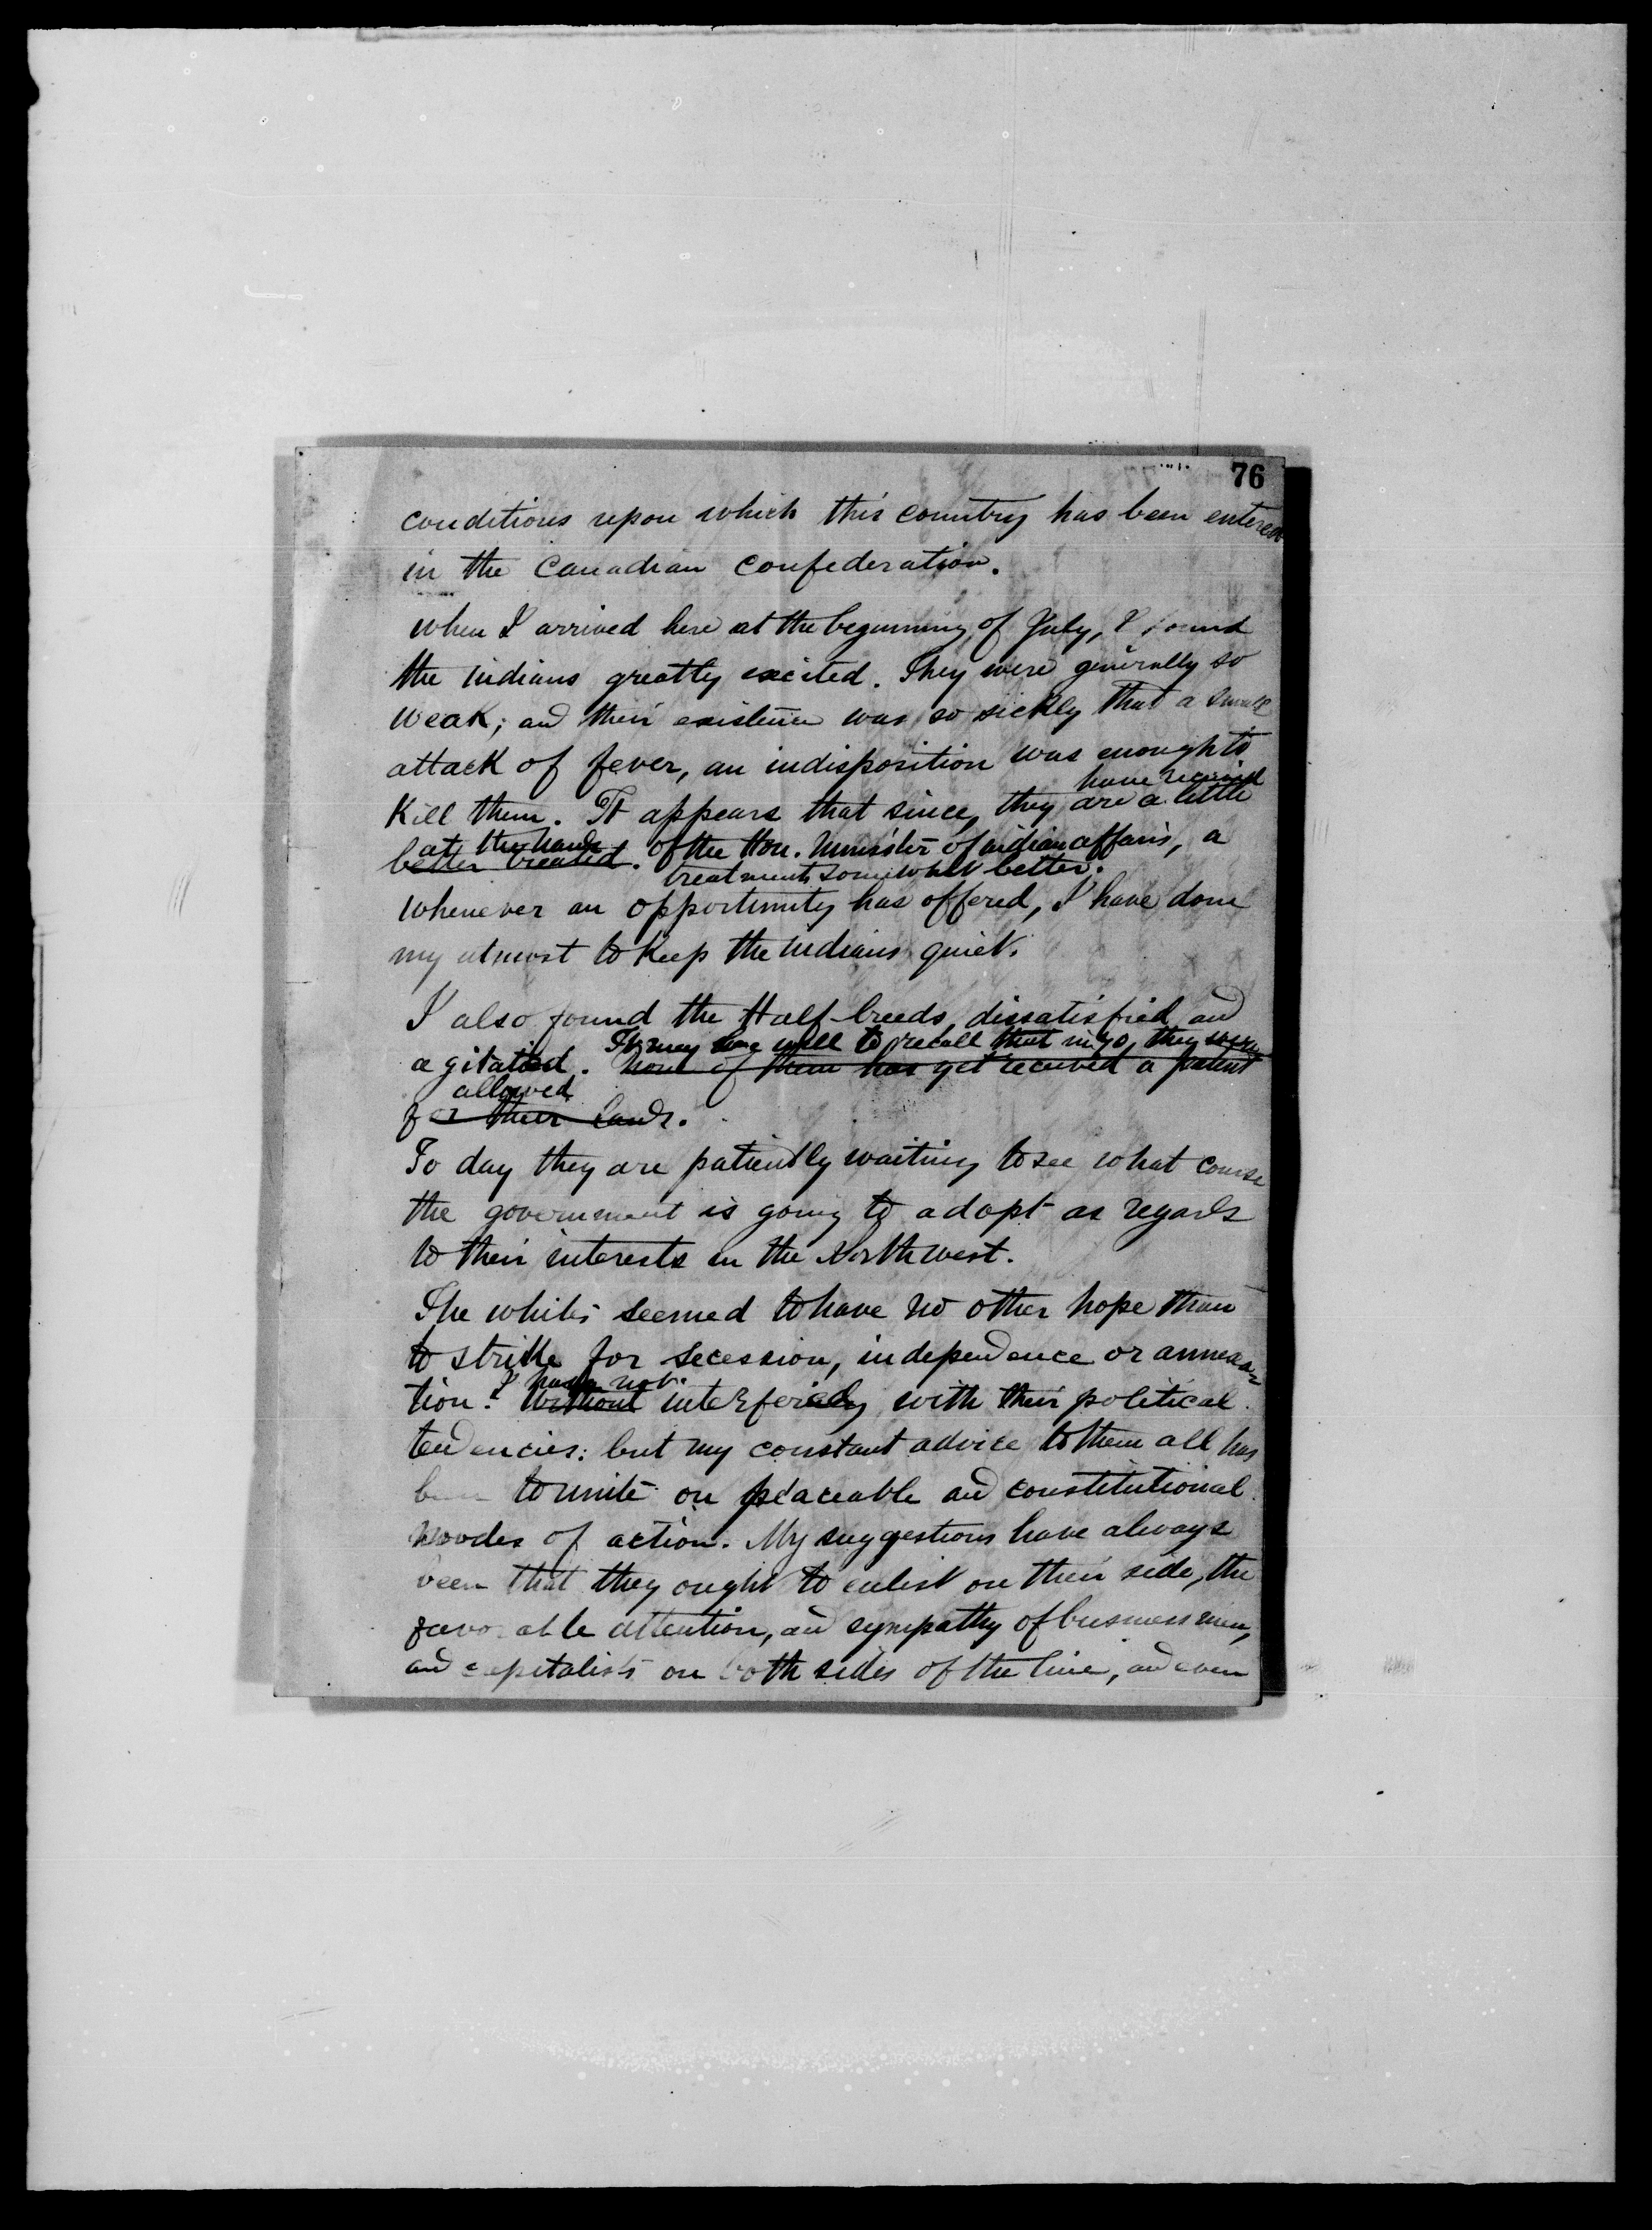 76
conditions upon which this country has been entered
in the Canadian Confederation.
when I arrived here at the beginning of July, I found
the indians greatly excited. They were generally so
weak; and their existence was so sickly that a small
attack of fever, an indisposition was enough to
have received
Kill them. It appears that since, they are a little
at the hands of the Hon. Minister of indian affairs, a
better treated.
treatment somewhat better.
Whenever an opportunity has offered, I have done
my utmost to Keep the indians quiet.
I also found the Half-breeds dissatisfied and
It may be well to recall that in 70, they were
agitated. None of them has yet received a patent
allowed
for their lands.
To day they are patiently waiting to see what course
the government is going to adopt as regards
to their interests in the North west.
The whites seemed to have no other hope than
to strike for secession, independence or annexa
I have not
tion. Without interfering with their political
tendencies: but my constant advice to them all has
been to unite on peaceable and constitutional
modes of action. My suggestions have always
been that they ought to enlist on their side, the
favorable attention, and sympathy of business men,
and capitalists on both sides of the line, and even